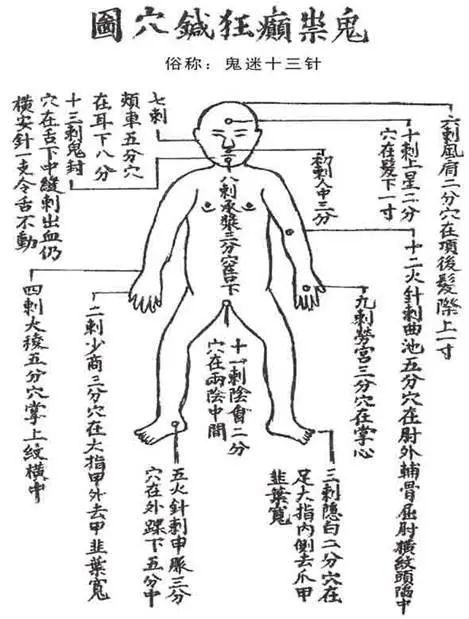 鬼祟癲狂鍼穴圖
俗称：鬼迷十三针
六刺風府二分穴在項後髮際上一寸
十刺上星二分
穴在髮下一寸
十二火針刺曲池五分穴在肘外輔骨屈肘橫紋頭陷中
初刺人中三分
九刺勞宮三分穴在掌心
三刺隱白二分穴在
足大指內側去爪甲
韭葉寬
八刺承漿三分穴唇下
十一刺陰會二分
穴在兩陰中間
七刺
頰車五分穴
在耳下八分
十三刺鬼封
穴在舌下中縫刺出血仍
橫安針一支令舌不動
五火針刺申脈三分
穴在外踝下五分中
二刺少商三分穴在大指甲外去甲韭葉寬
四刺大稜五分穴掌上紋橫中